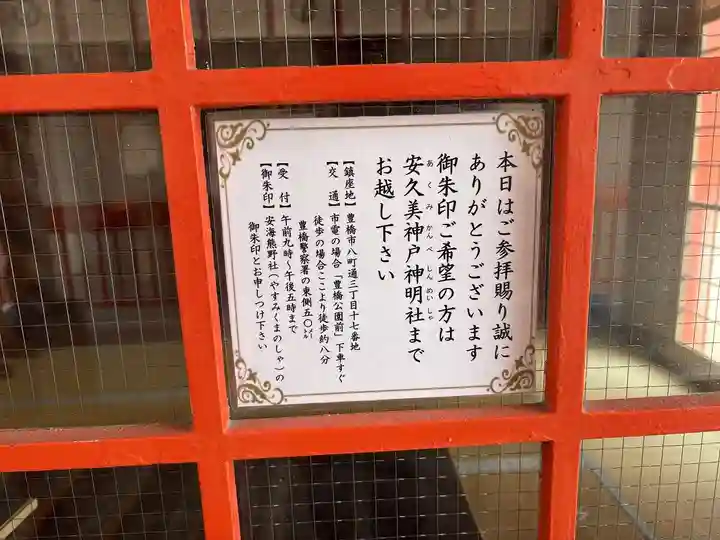 本日はご参拝賜り誠に
ありがとうございます
御朱印ご希望の方は
安久美神戸神明社まで
あくみかんべしんめいしゃ
お越し下さい
【鎮座地】豊橋市八町通三丁目十七番地
【交 通】市電の場合「豊橋公園前」下車すぐ
徒歩の場合ここより徒歩約八分
豊橋警察署の東側五〇㍍
【受 付】午前九時~午後五時まで
【御朱印】安海熊野社(やすみくまのしゃ)の
御朱印とお申しつけ下さい